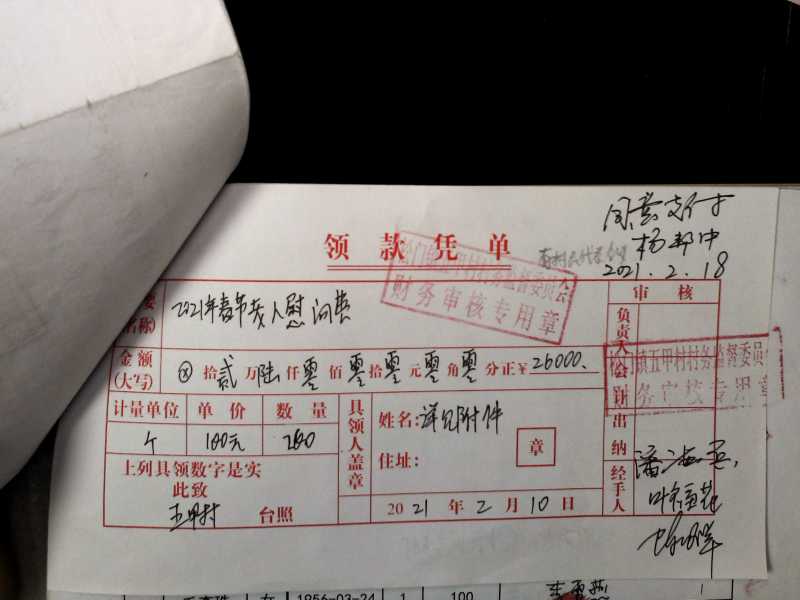 同意支付
杨邦中
2021.2.18
领款凭单
松门镇五甲村村务监督委员会
财务审核专用章
审核
要
名称)
2021年春节老人慰问费
负责人
金额
(大写)
⊗拾贰万陆仟零佰零拾零元零角零分正¥26000.
松门镇五甲村村务监督委员
财务审核专用章
会计
计量单位 单价 数量
个 100元 260
具领人盖章
姓名:详见附件
住址:
章
出纳
上列具领数字是实
此致
五甲村 台照
2021年2月10日
经手人
1956-03-24 1 100